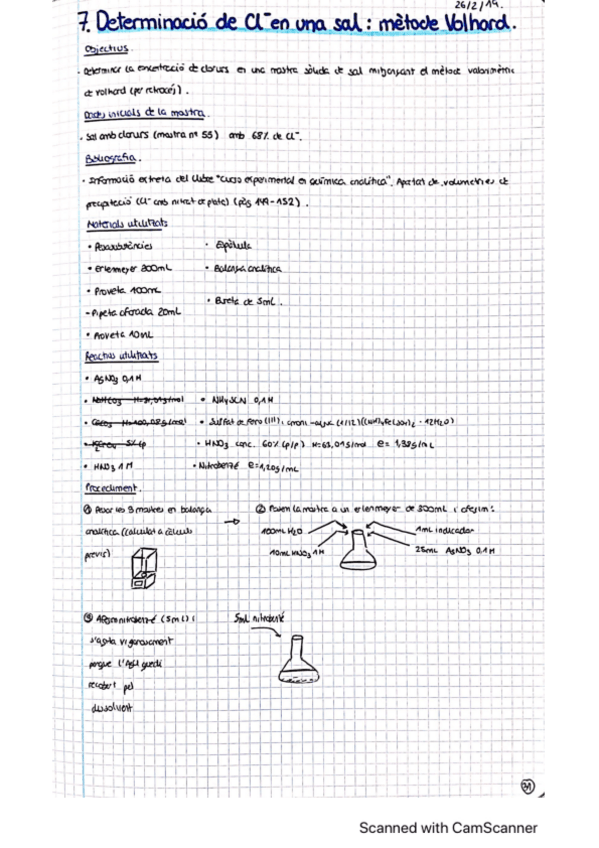 26/2/19.
7. Determinació de Cl⁻ en una sal: mètode Volhard.
Objectius.
· Determinar la concentració de clorurs en una mostra sòlida de sal mitjançant el mètode valorimètric
de Volhard (per retrocés).
Dades inicials de la mostra.
· Sal amb clorurs (mostra nº 55) amb 68% de Cl⁻.
Bibliografia.
· Informació extreta del llibre "Curso experimental en química analítica". Apartat de volumetries de
precipitació (Cl⁻ amb nitrat de plata) (pàg 149-152).
Materials utilitzats
• Pesasubstàncies • Espàtula
• erlenmeyer 300mL • Balança analítica
• Proveta 100mL • Bureta de 5mL.
- Pipeta aforada 20mL
• Proveta 10mL
Reactius utilitzats
• AgNO3 0,1M
• NH4SCN 0,1M
• Sulfat de ferro (III), amoni
• HNO3 conc. 60% (p/p) M=63,01g/mol e=1,38g/mL
• HNO3 1M • Nitrobenzè e=1,20g/mL
Procediment.
① Pesar les 3 mostres en balança ② Posem la mostra a un erlenmeyer de 300mL i afegim:
analítica (calculat a càlculs → 100mL H2O 1mL indicador
previs) 10mL HNO3 1M 25mL AgNO3 0,1M
③ Afegim nitrobenzè (5mL) i 5mL nitrobenzè
s'agita vigorosament
perque l'AgCl quedi
recobert pel
dissolvent
31
Scanned with CamScanner